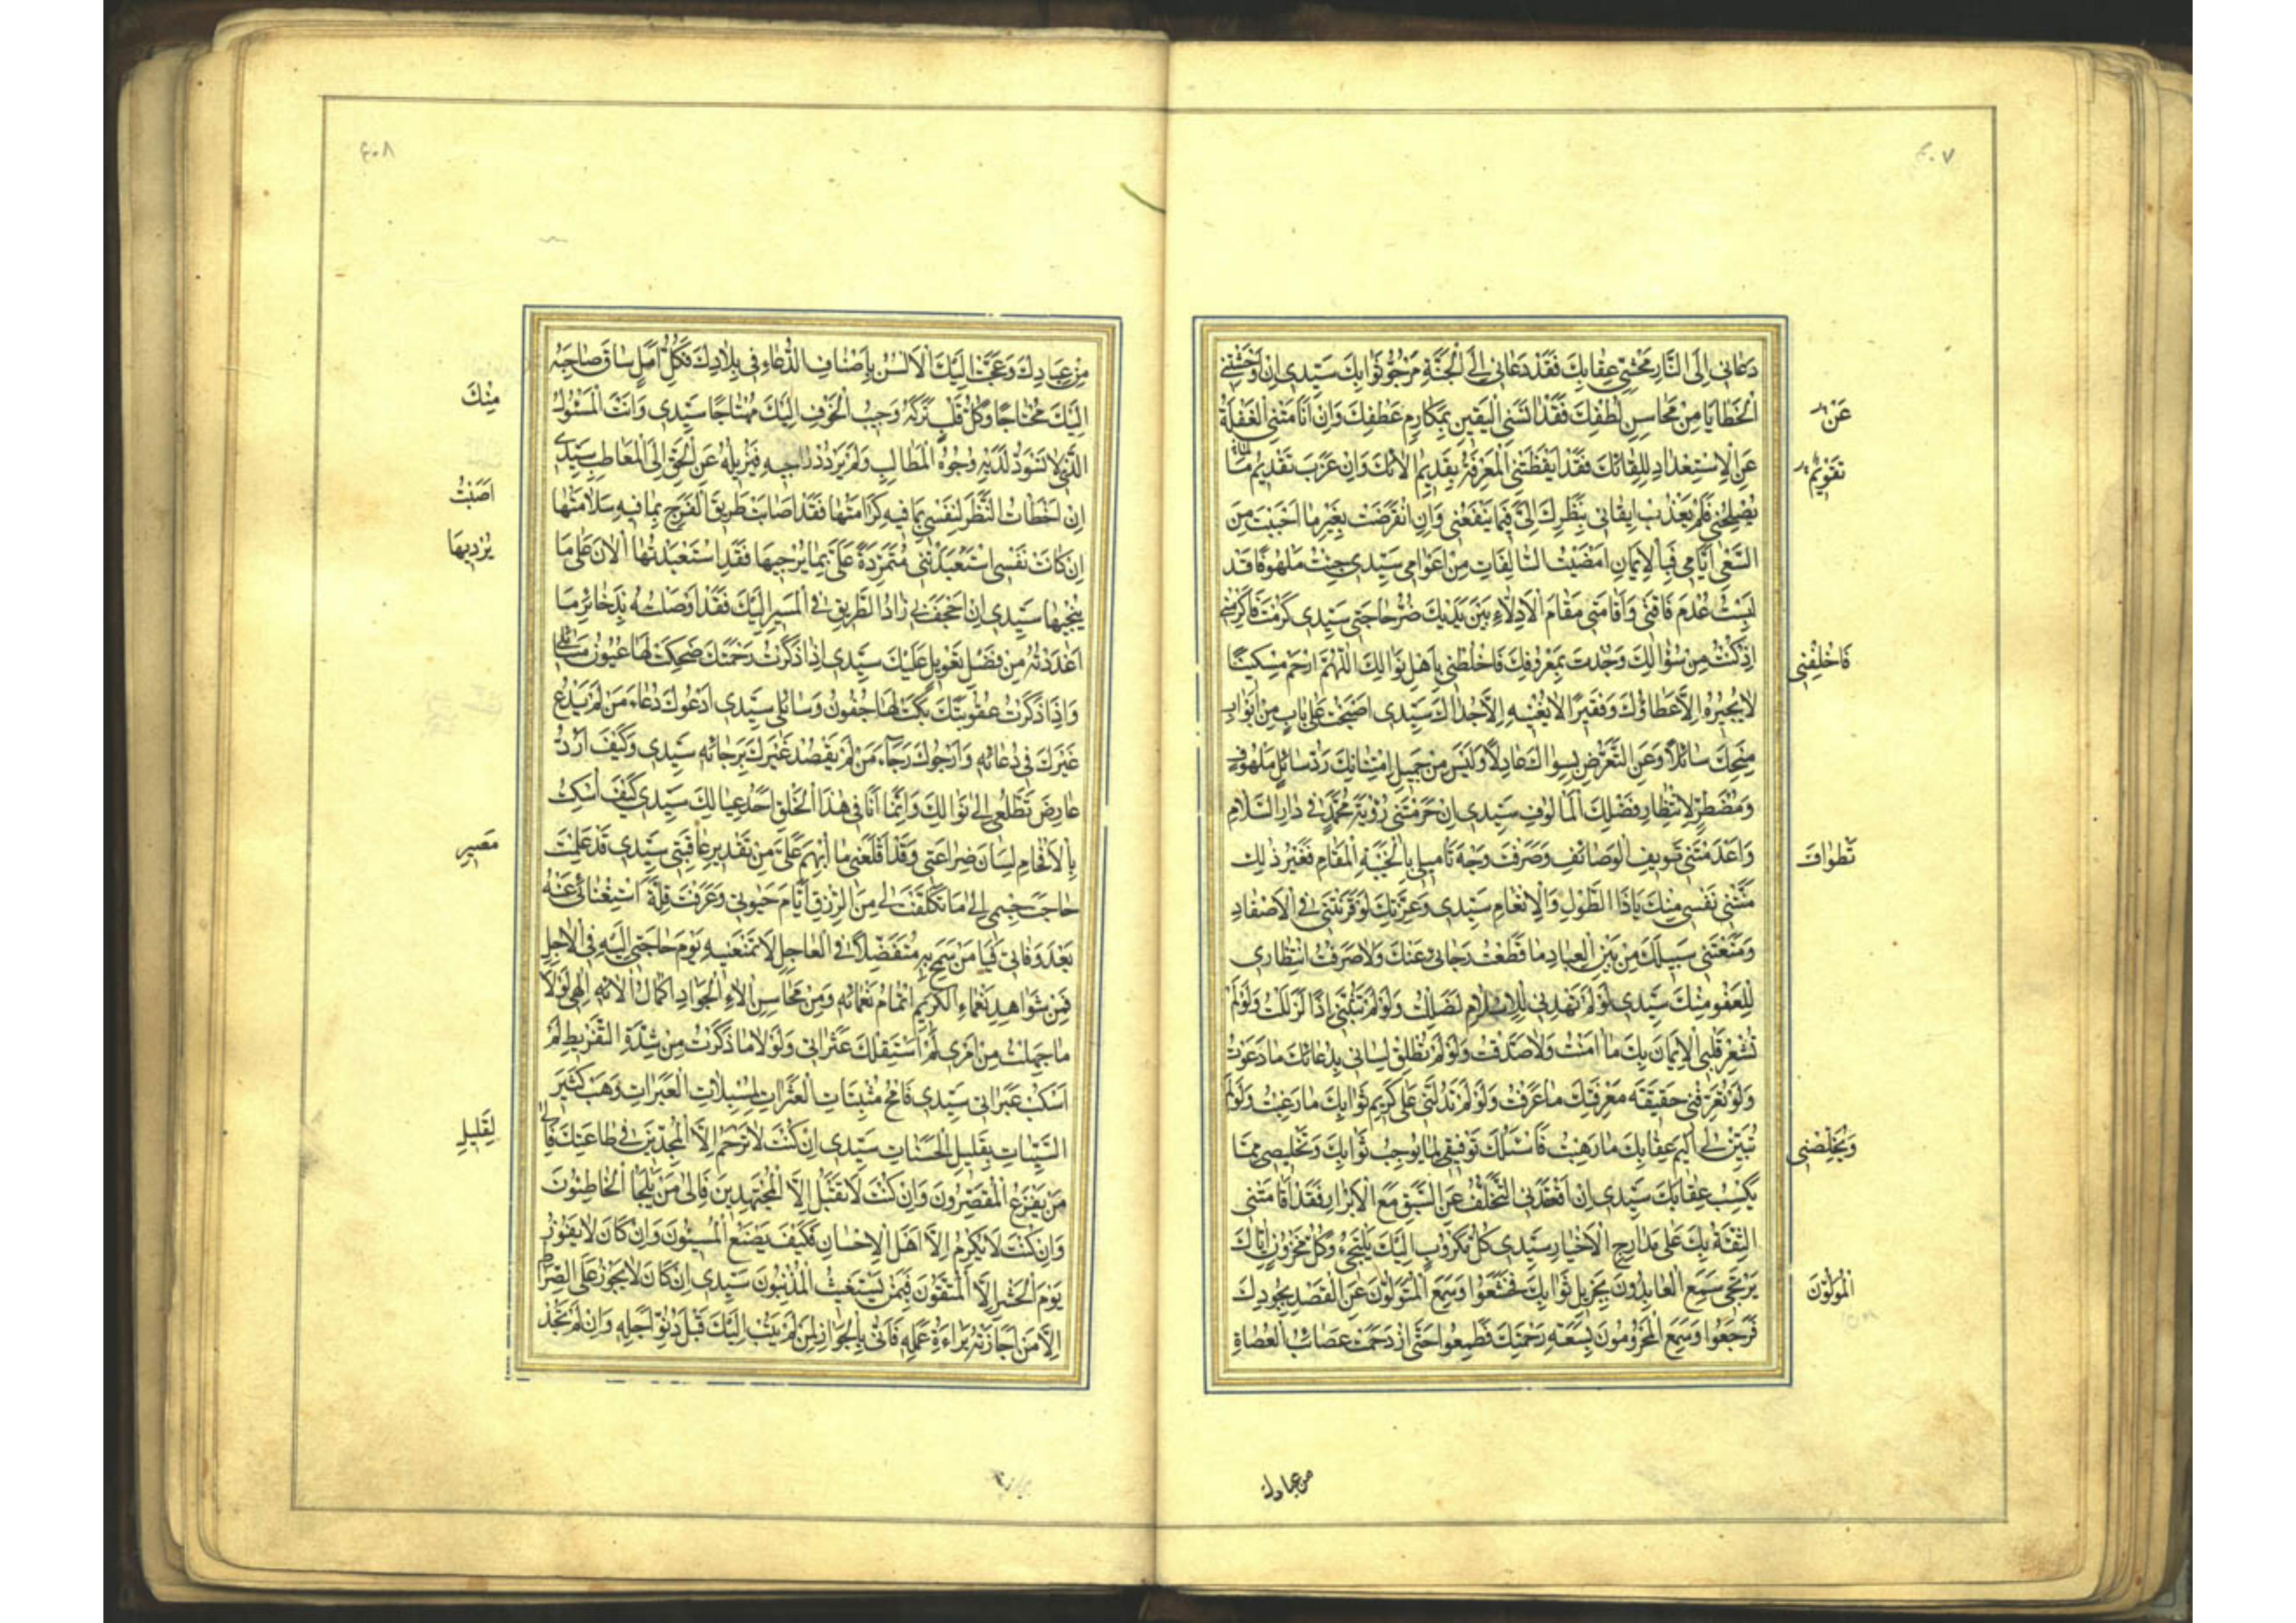 ٤٠٧
دَعَانِی اِلَی النَّارِ مَخْشِیُّ عِقَابِكَ فَقَدْ دَعَانِی اِلَی الْجَنَّةِ مَرْجُوُّ ثَوَابِكَ سَیِّدِی اِنْ اَوْحَشَتْنِی
الْخَطَایَا مِنْ مَحَاسِنِ لُطْفِكَ فَقَدْ اٰنَسَنِی الْیَقِینُ بِمَكَارِمِ عَطْفِكَ وَاِنْ اَنَامَتْنِی الْغَفْلَةُ
عَنْ
عَنِ الْاِسْتِعْدَادِ لِلِقَائِكَ فَقَدْ اَیْقَظَتْنِی الْمَعْرِفَةُ بِقَدِیمِ اٰلَائِكَ وَاِنْ عَزَبَ تَقْدِیمُ مَا
تَقْوِیمُ
یُصْلِحُنِی فَلَمْ یَعْزُبْ اِیقَانِی بِنَظَرِكَ لِی فِیمَا یَنْفَعُنِی وَاِنِ انْقَرَضَتْ بِغَیْرِ مَا اَحْبَبْتَ مِنَ
السَّعْیِ اَیَّامِی فَبِالْاِیمَانِ اَمْضَیْتُ السَّالِفَاتِ مِنْ اَعْوَامِی سَیِّدِی جِئْتُ مَلْهُوفًا قَدْ
لَبِسْتُ عُدْمَ فَاقَتِی وَاَقَامَنِی مَقَامَ الْاَذِلَّاءِ بَیْنَ یَدَیْكَ ضُرُّ حَاجَتِی سَیِّدِی كَرُمْتَ فَاَكْرِمْنِی
اِذْ كُنْتُ مِنْ سُؤَّالِكَ وَجُدْتَ بِمَعْرُوفِكَ فَاخْلِطْنِی بِاَهْلِ نَوَالِكَ اَللّٰهُمَّ ارْحَمْ مِسْكِینًا
فَاخْلِفْنِی
لَا یُجِیرُهُ اِلَّا عَطَاؤُكَ وَفَقِیرًا لَا یُغْنِیهِ اِلَّا جَدْاكَ سَیِّدِی اَصْبَحْتُ عَلَی بَابٍ مِنْ اَبْوَابِ
مِنَحِكَ سَائِلًا وَعَنِ التَّعَرُّضِ لِسِوَاكَ عَادِلًا وَلَیْسَ مِنْ جَمِیلِ امْتِنَانِكَ رَدُّ سَائِلٍ مَلْهُوفٍ
وَمُضْطَرٍّ لِانْتِظَارِ فَضْلِكَ الْمَأْلُوفِ سَیِّدِی اِنْ حَرَمْتَنِی رُؤْیَةَ مُحَمَّدٍ فِی دَارِ السَّلَامِ
وَاَعْدَمْتَنِی تَویِفَ الْوَصَائِفِ وَصَرَفْتَ وَجْهَ تَأْمِیلِی بِالْخَیْبَةِ الْمَقَامِ فَغَیْرَ ذٰلِكَ
تَطْوَافَ
مَنَّتْنِی نَفْسِی مِنْكَ یَا ذَا الطَّوْلِ وَالْاِنْعَامِ سَیِّدِی وَعِزَّتِكَ لَوْ قَرَنْتَنِی فِی الْاَصْفَادِ
وَمَنَعْتَنِی سَیْبَكَ مِنْ بَیْنِ الْعِبَادِ مَا قَطَعْتُ رَجَائِی عَنْكَ وَلَا صَرَفْتُ انْتِظَارِی
لِلْعَفْوِ مِنْكَ سَیِّدِی لَوْ لَمْ تَهْدِنِی لِلْاِسْلَامِ لَضَلَلْتُ وَلَوْ لَمْ تُثَبِّتْنِی اِذًا لَزَلَلْتُ وَلَوْ لَمْ
تُشْعِرْ قَلْبِی الْاِیمَانَ بِكَ مَا اٰمَنْتُ وَلَا صَدَّقْتُ وَلَوْ لَمْ تُطْلِقْ لِسَانِی بِدُعَائِكَ مَا دَعَوْتُ
وَلَوْ تُعَرِّفْنِی حَقِیقَةَ مَعْرِفَتِكَ مَا عَرَفْتُ وَلَوْ لَمْ تَدُلَّنِی عَلَی كَرِیمِ ثَوَابِكَ مَا رَغِبْتُ وَلَوْ لَمْ
تُبَیِّنْ لِی اَلِیمَ عِقَابِكَ مَا رَهِبْتُ فَاَسْئَلُكَ تَوْفِیقِی لِمَا یُوجِبُ ثَوَابَكَ وَتَخْلِیصِی مِمَّا
وَتُخَلِّصَنِی
یَكْسِبُ عِقَابَكَ سَیِّدِی اِنْ اَقْعَدَنِی التَّخَلُّفُ عَنِ السَّبْقِ مَعَ الْاَبْرَارِ فَقَدْ اَقَامَتْنِی
الثِّقَةُ بِكَ عَلَی مَدَارِجِ الْاَخْیَارِ سَیِّدِی كُلُّ مَكْرُوبٍ اِلَیْكَ یَلْتَجِیءُ وَكُلُّ مَحْزُونٍ اِیَّاكَ
یَرْتَجِی سَمِعَ الْعَابِدُونَ بِجَزِیلِ ثَوَابِكَ فَخَشَعُوا وَسَمِعَ الْمُتَوَلُّونَ عَنِ الْقَصْدِ بِجُودِكَ
الْمُوَلُّونَ
فَرَجَعُوا وَسَمِعَ الْمَحْرُومُونَ بِسَعَةِ رَحْمَتِكَ فَطَمِعُوا حَتَّی ازْدَحَمَتْ عَصَائِبُ الْعُصَاةِ
من عبادك
٤٠٨
مِنْ عِبَادِكَ وَعَجَّتْ اِلَیْكَ الْاَلْسُنُ بِاَصْنَافِ الدُّعَاءِ فِی بِلَادِكَ فَكُلُّ اَمَلٍ سَاقَ صَاحِبَهُ
اِلَیْكَ مُحْتَاجًا وَكُلُّ قَلْبٍ تَرَكَهُ وَجِیبُ الْخَوْفِ اِلَیْكَ مُهْتَاجًا سَیِّدِی وَاَنْتَ الْمَسْئُولُ
مِنْكَ
الَّذِی لَا تَسْوَدُّ لَدَیْهِ وُجُوهُ الْمَطَالِبِ وَلَمْ یَرْدُدْ رَاجِیهِ فَیُزِیلَهُ عَنِ الْحَقِّ اِلَی الْمَعَاطِبِ سَیِّدِی
اِنْ اَخْطَأْتُ النَّظَرَ لِنَفْسِی بِمَا فِیهِ كَرَامَتُهَا فَقَدْ اَصَابَتْ طَرِیقَ الْفَرَجِ بِمَا فِیهِ سَلَامَتُهَا
اَصَبْتُ
اِنْ كَانَتْ نَفْسِی اسْتَعْبَدَتْنِی مُتَمَرِّدَةً عَلَیَّ بِمَا یُرْجِیهَا فَقَدِ اسْتَعْبَدْتُهَا الْاٰنَ عَلَی مَا
یُرْدِیهَا
یُنْجِیهَا سَیِّدِی اِنْ اَجْحَفَ بِی زَادُ الطَّرِیقِ فِی الْمَسِیرِ اِلَیْكَ فَقَدْ اَوْصَلْتُهُ بِذَخَائِرِ مَا
اَعْدَدْتُهُ مِنْ فَضْلِ تَعْوِیلِی عَلَیْكَ سَیِّدِی اِذَا ذَكَرْتُ رَحْمَتَكَ ضَحِكَتْ لَهَا عُیُونُ مَسَائِلِی
وَاِذَا ذَكَرْتُ عُقُوبَتَكَ بَكَتْ لَهَا جُفُونُ وَسَائِلِی سَیِّدِی اَدْعُوكَ دُعَاءَ مَنْ لَمْ یَدْعُ
غَیْرَكَ فِی دُعَائِهِ وَاَرْجُوكَ رَجَاءَ مَنْ لَمْ یَقْصُدْ غَیْرَكَ بِرَجَائِهِ سَیِّدِی وَكَیْفَ اَرُدُّ
عَارِضَ تَطَلُّعِی اِلَی نَوَالِكَ وَاِنَّمَا اَنَا فِی هٰذَا الْخَلْقِ اَحَدُ عِیَالِكَ سَیِّدِی كَیْفَ اُسْكِتُ
بِالْاِفْحَامِ لِسَانَ ضَرَاعَتِی وَقَدْ اَقْلَقَنِی مَا اُبْهِمَ عَلَیَّ مِنْ تَقْدِیرِ عَاقِبَتِی سَیِّدِی قَدْ عَلِمْتَ
مَصِیرِ
حَاجَتَ جِسْمِی اِلَی مَا تَكَفَّلْتَ لِی مِنَ الرِّزْقِ اَیَّامَ حَیٰوتِی وَعَرَفْتَ قِلَّةَ اسْتِغْنَائِی عَنْهُ
بَعْدَ وَفَاتِی فَیَا مَنْ سَمَحَ بِهِ مُتَفَضِّلًا فِی الْعَاجِلِ لَا تَمْنَعْنِیهِ یَوْمَ حَاجَتِی اِلَیْهِ فِی الْاٰجِلِ
فَمِنْ شَوَاهِدِ نَعْمَاءِ الْكَرِیمِ اِتْمَامُ نَعْمَائِهِ وَمِنْ مَحَاسِنِ اٰلَاءِ الْجَوَادِ اِكْمَالُ اٰلَائِهِ اِلٰهِی لَوْلَا
مَا جَهِلْتُ مِنْ اَمْرِی لَمْ اَسْتَقِلْكَ عَثَرَاتِی وَلَوْلَا مَا ذَكَرْتُ مِنْ شِدَّةِ التَّفْرِیطِ لَمْ
اَسْكُبْ عَبَرَاتِی سَیِّدِی فَامْحُ مُثْبَتَاتِ الْعَثَرَاتِ لِمُسْبِلَاتِ الْعَبَرَاتِ وَهَبْ كَثِیرَ
السَّیِّئَاتِ بِقَلِیلِ الْحَسَنَاتِ سَیِّدِی اِنْ كُنْتَ لَا تَرْحَمُ اِلَّا الْمُجِدِّینَ فِی طَاعَتِكَ فَاِلَی
لِقَلِیلِ
مَنْ یَفْزَعُ الْمُقَصِّرُونَ وَاِنْ كُنْتَ لَا تَقْبَلُ اِلَّا الْمُجْتَهِدِینَ فَاِلَی مَنْ یَلْجَأُ الْخَاطِئُونَ
وَاِنْ كُنْتَ لَا تُكْرِمُ اِلَّا اَهْلَ الْاِحْسَانِ فَكَیْفَ یَصْنَعُ الْمُسِیئُونَ وَاِنْ كَانَ لَا یَفُوزُ
یَوْمَ الْحَشْرِ اِلَّا الْمُتَّقُونَ فَبِمَنْ یَسْتَغِیثُ الْمُذْنِبُونَ سَیِّدِی اِنْ كَانَ لَا یَجُوزُ عَلَی الصِّرَاطِ
اِلَّا مَنْ اَجَازَتْهُ بَرَاءَةُ عَمَلِهِ فَاَنَّی بِالْجَوَازِ لِمَنْ لَمْ یَتُبْ اِلَیْكَ قَبْلَ دُنُوِّ اَجَلِهِ وَاِنْ لَمْ تَجُدْ